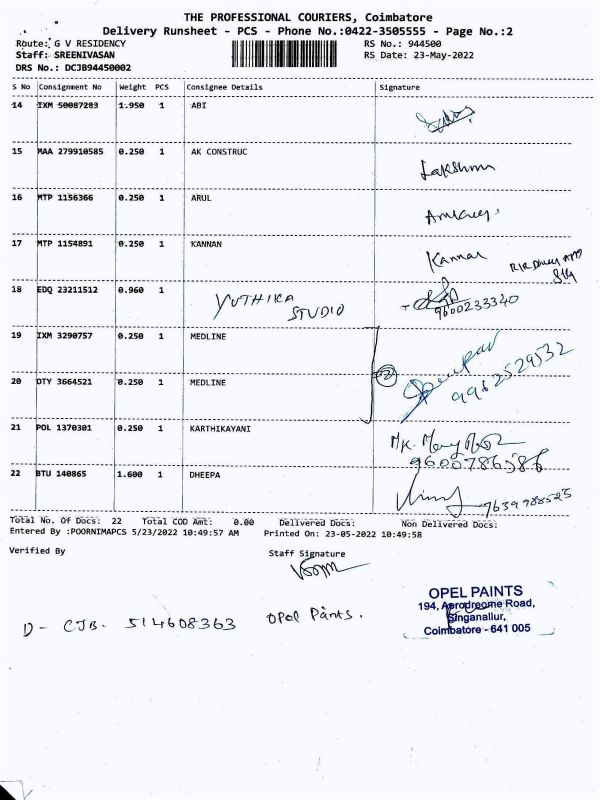 THE PROFESSIONAL COURIERS, Coimbatore
Delivery Runsheet - PCS - Phone No.:0422-3505555 - Page No.:2
Route: G V RESIDENCY RS No.: 944500
Staff: SREENIVASAN RS Date: 23-May-2022
DRS No.: DCJB94450002
S No Consignment No Weight PCS Consignee Details Signature
14 IXM 50087283 1.950 1 ABI
15 MAA 279910585 0.250 1 AK CONSTRUC Lakshmi
16 MTP 1156366 0.250 1 ARUL
17 MTP 1154891 0.250 1 KANNAN Kannan
18 EDQ 23211512 0.960 1 YUTHIKA STUDIO 9600233340
19 IXM 3290757 0.250 1 MEDLINE
20 DTY 3664521 0.250 1 MEDLINE 2 9962529532
21 POL 1370301 0.250 1 KARTHIKAYANI
22 BTU 140865 1.600 1 DHEEPA 7639988525
Total No. Of Docs: 22 Total COD Amt: 0.00 Delivered Docs: Non Delivered Docs:
Entered By :POORNIMAPCS 5/23/2022 10:49:57 AM Printed On: 23-05-2022 10:49:58
Verified By Staff Signature
D- CJB. 514608363 Opel Paints.
OPEL PAINTS
194, Aerodreome Road,
Singanallur,
Coimbatore - 641 005